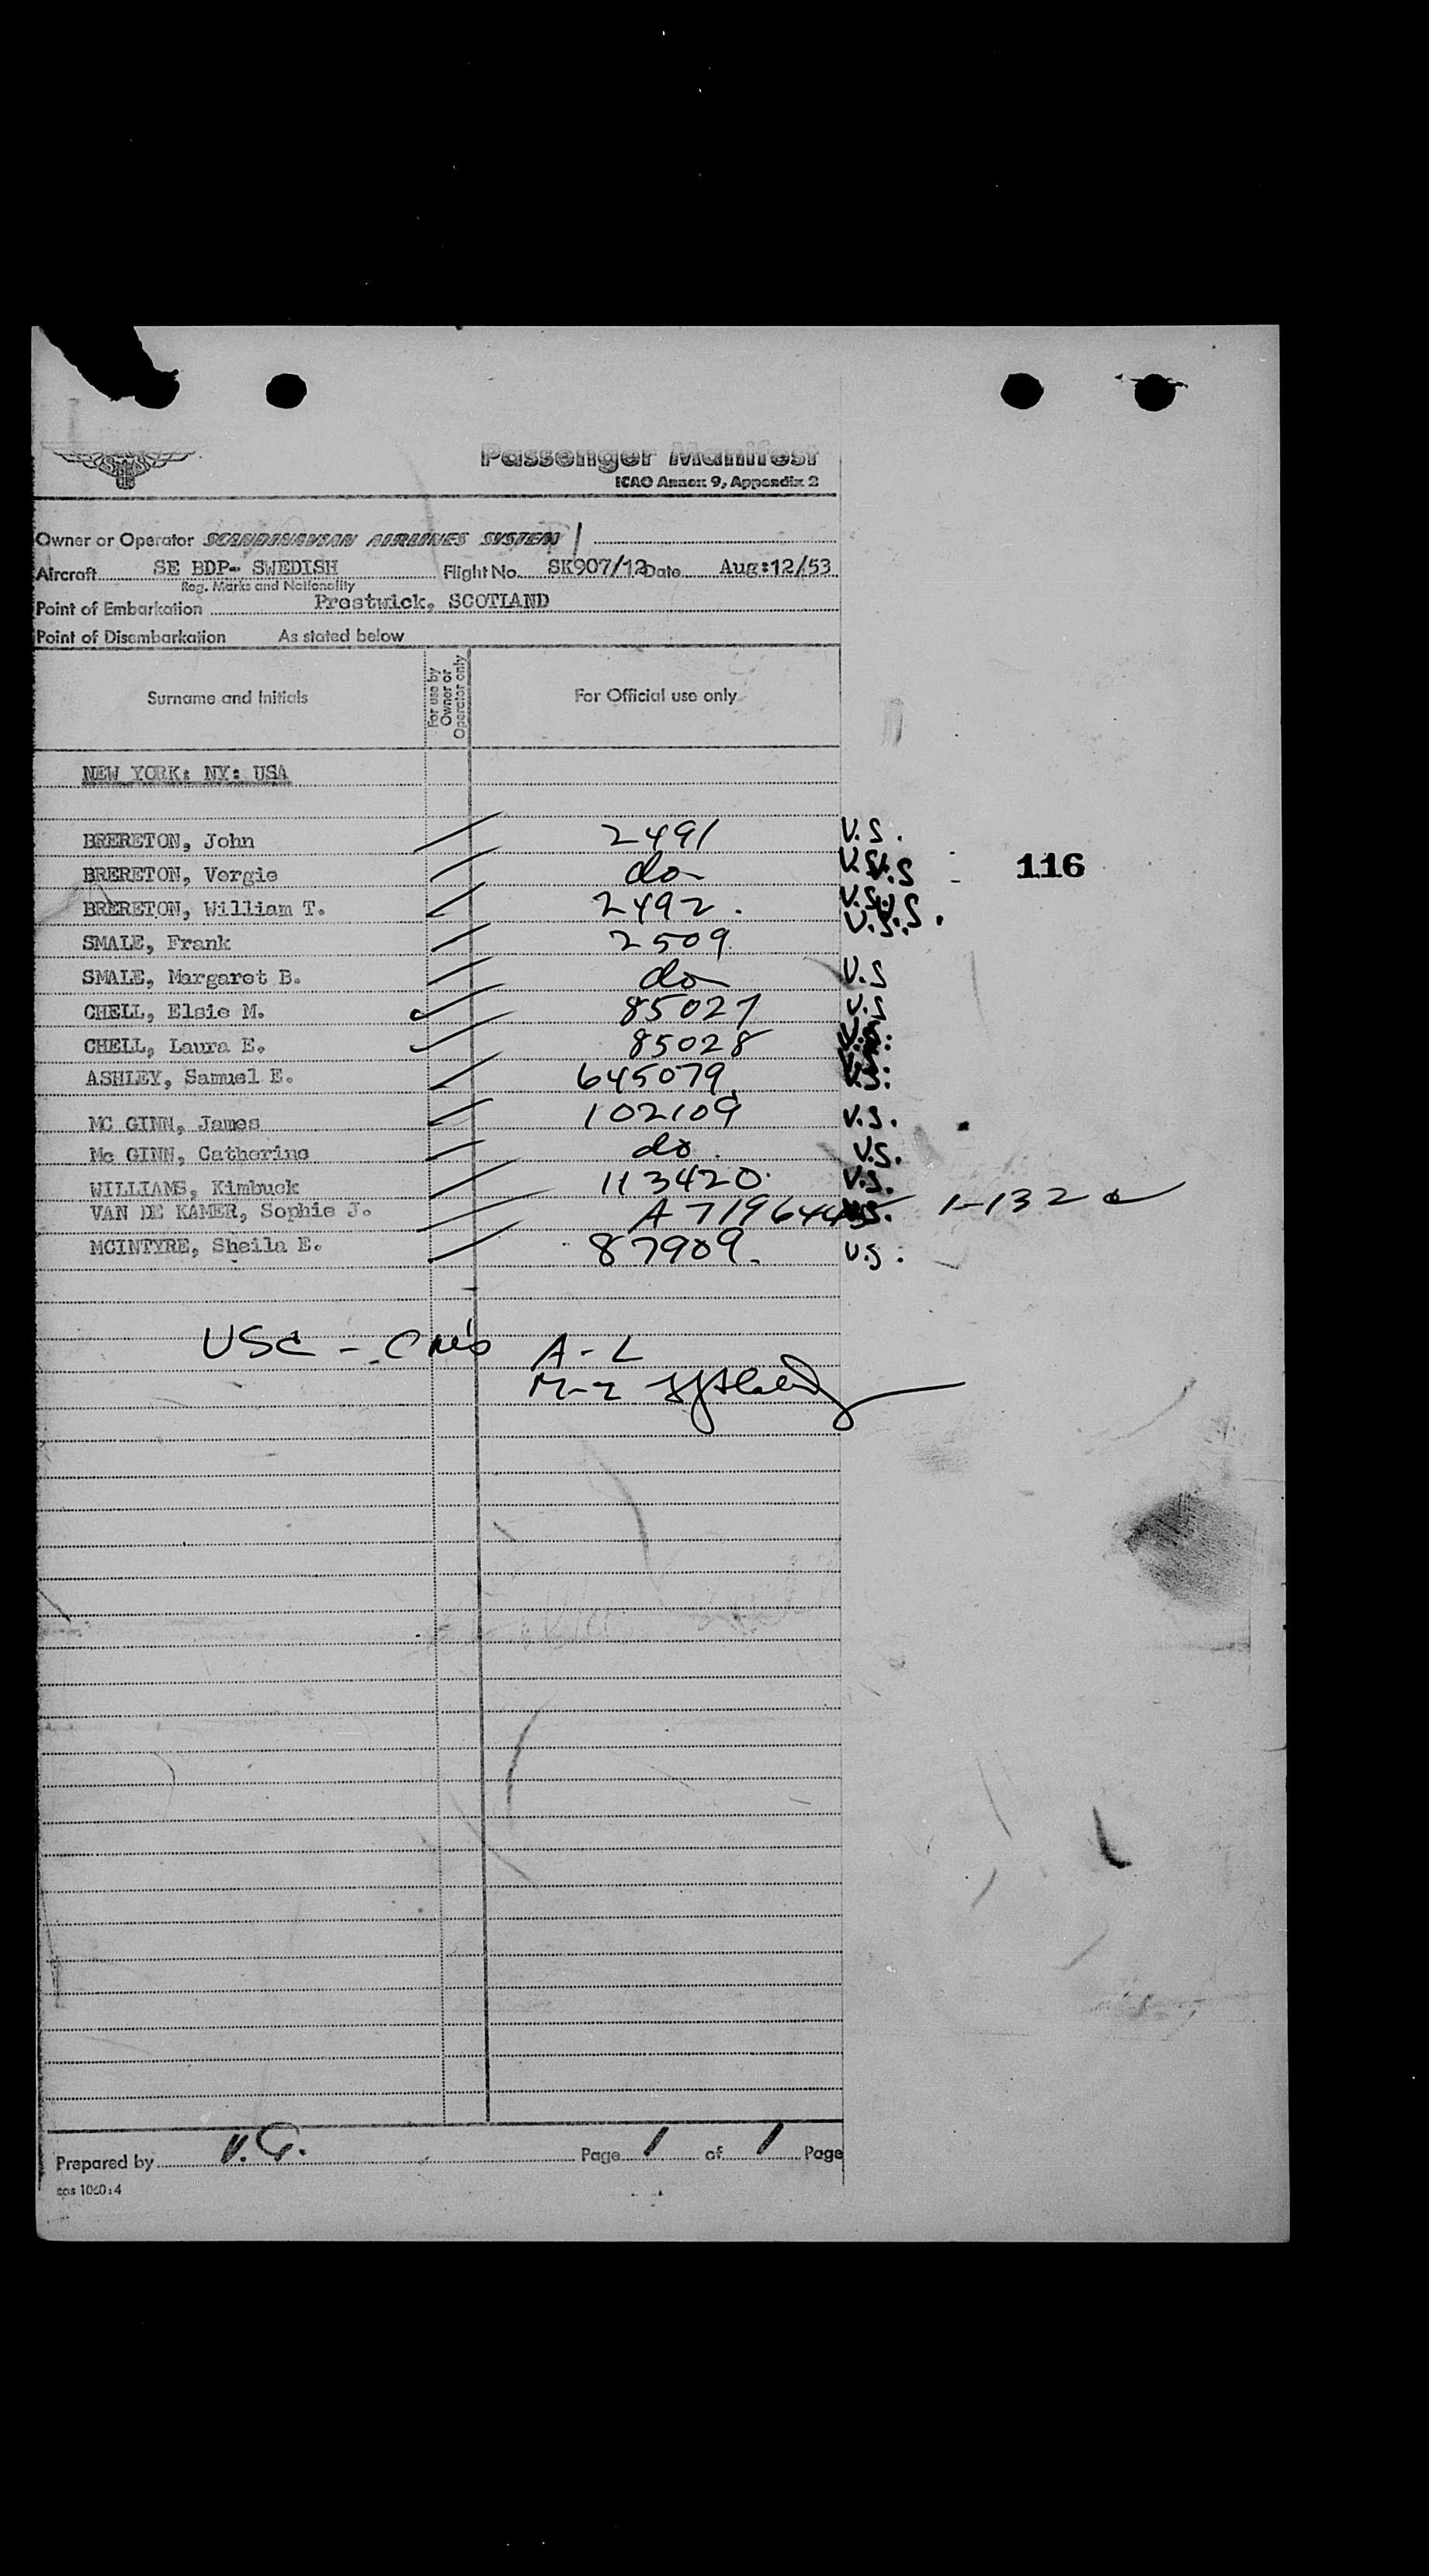 Passenger Manifest
ICAO Annex 9, Appendix 2
Owner or Operator SCANDINAVIAN AIRLINES SYSTEM
Aircraft SE BDP- SWEDISH Flight No. SK907/12 Date Aug:12/53
Reg. Marks and Nationality
Point of Embarkation Prestwick, SCOTLAND
Point of Disembarkation As stated below
Surname and Initials For use by Owner or Operator only For Official use only
NEW YORK: NY: USA
BRERETON, John 2491 U.S.
BRERETON, Vergie do U.S. U.S 116
BRERETON, William T. 2492. U.S. U.S.
SMALE, Frank 2509 U.S.
SMALE, Margaret B. do U.S
CHELL, Elsie M. 85027 U.S
CHELL, Laura E. 85028 U.S.
ASHLEY, Samuel E. 645079 U.S.
MC GINN, James 102109 U.S.
Mc GINN, Catherine do. U.S.
WILLIAMS, Kimbuck 113420. U.S.
VAN DE KAMER, Sophie J. A 719644 1-132
MCINTYRE, Sheila E. 87909. U.S.
USC - A-L
M-Z
Prepared by V.G. Page 1 of 1 Page
sas 1060:4